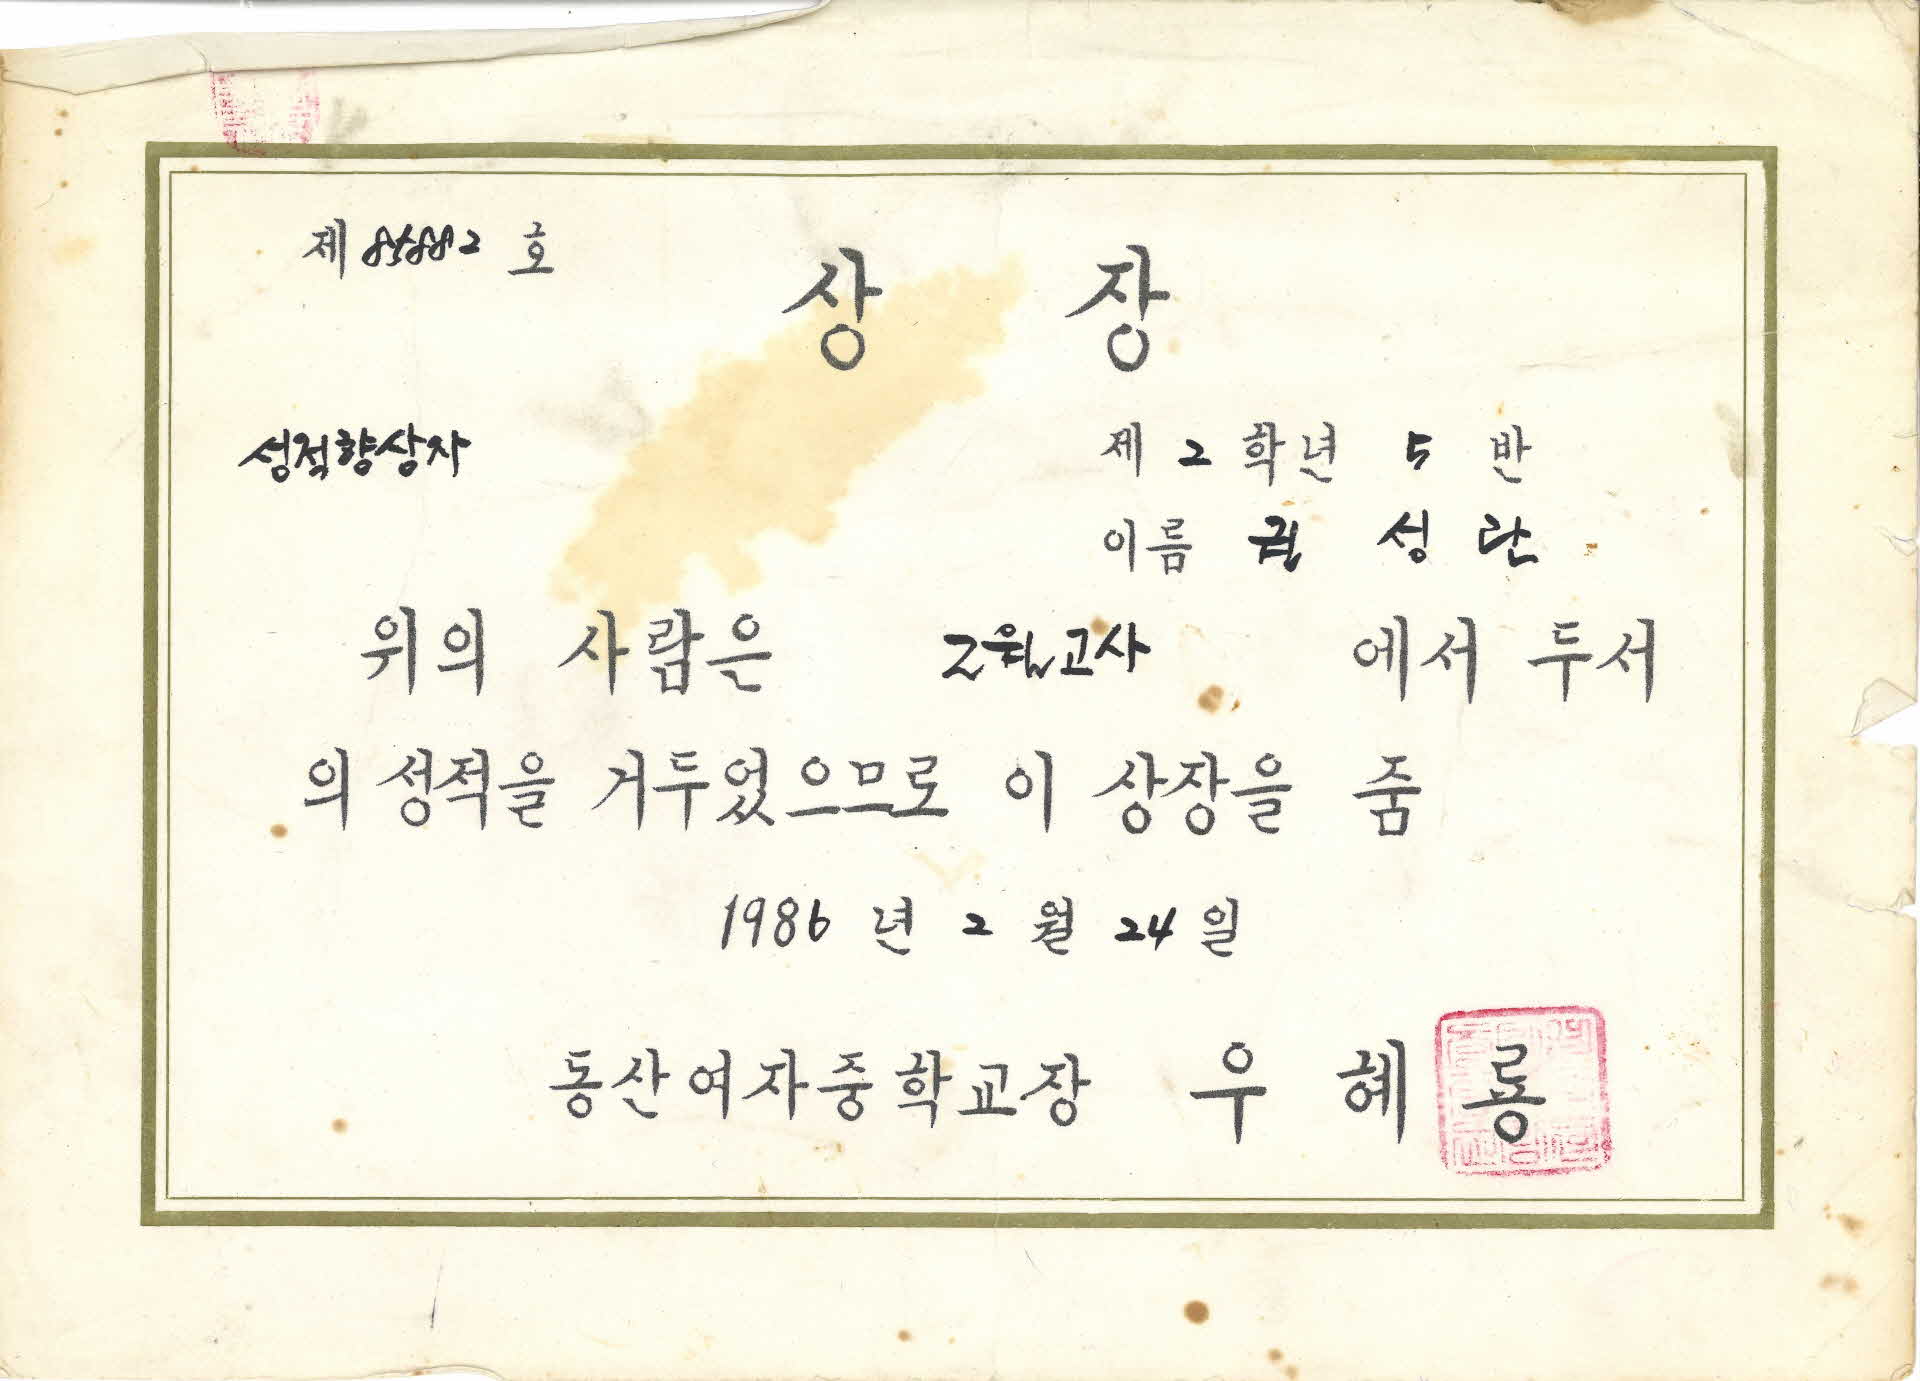 제 85882 호
상 장
성적향상자
제 2 학년 5 반
이름 권 성 란
위의 사람은 2월고사 에서 두서
의 성적을 거두었으므로 이 상장을 줌
1986 년 2 월 24 일
동산여자중학교장 우 혜 룡